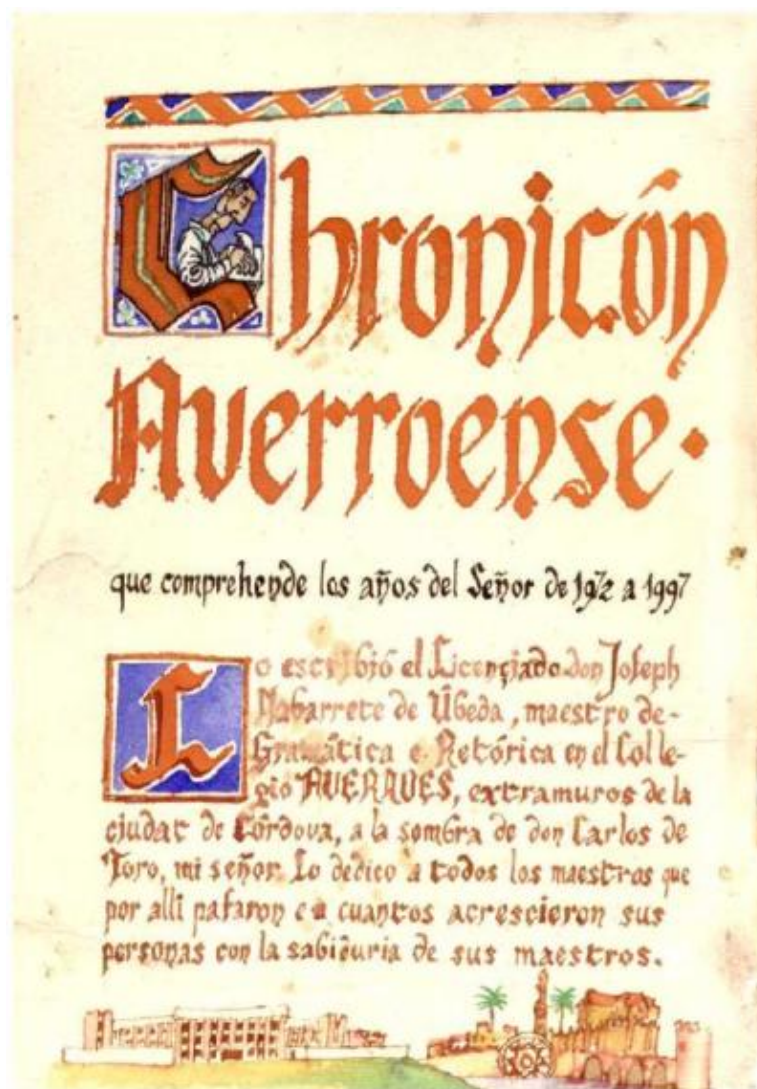 Chronicón
Averroense.
que comprehende los años del Señor de 1972 a 1997
Lo escribió el Licençiado don Joseph
Nabarrete de Úbeda, maestro de
Gramática e Retórica en el Colle-
gio AVERROES, extramuros de la
çiudat de Córdova, a la sombra de don Carlos de
Toro, mi señor. Lo dedico a todos los maestros que
por alli pasaron e a cuantos acrescieron sus
personas con la sabiduria de sus maestros.